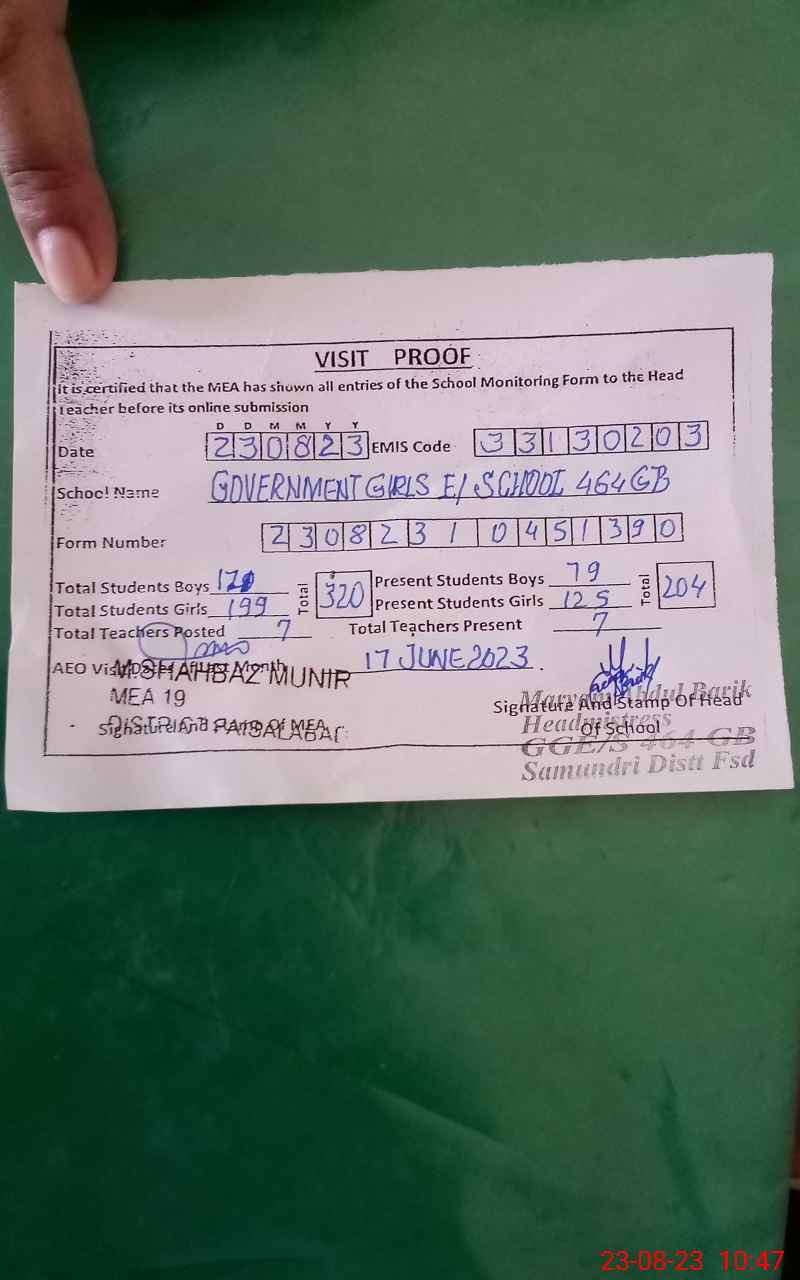 VISIT PROOF
It is certified that the MEA has shown all entries of the School Monitoring Form to the Head
Teacher before its online submission
D D M M Y Y
Date 230823 EMIS Code 33130203
School Name GOVERNMENT GIRLS E/SCHOOL 464GB
Form Number 2308231 0451390
Total Students Boys Total 320 Present Students Boys 79 Total 204
Total Students Girls 199 Present Students Girls 125
Total Teachers Posted 7 Total Teachers Present 7
AEO Visit Month 17 JUNE 2023.
SHAHBAZ MUNIR
MEA 19
Signature And Stamp Of MEA
Signature And Stamp Of Head
Of School
Maryam Abdul Barik
Headmistress
GGE/S 464 GB
Samundri Distt Fsd
23-08-23 10:47